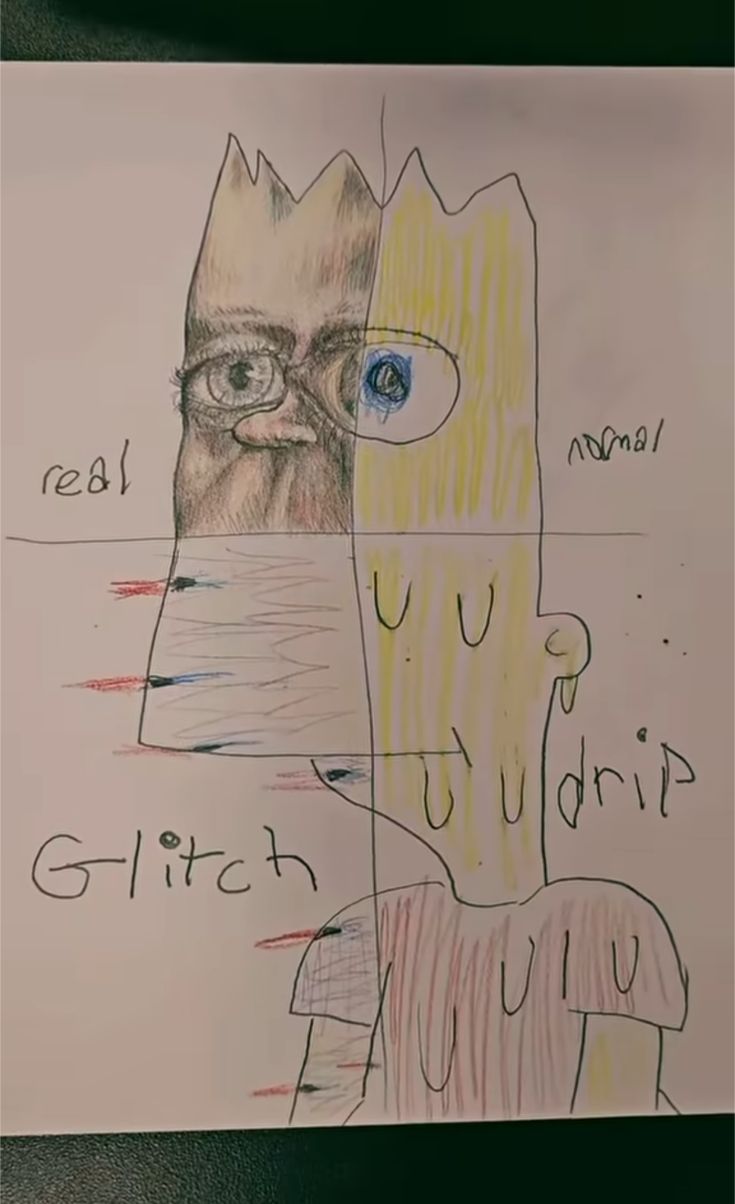 real
normal
Glitch
drip